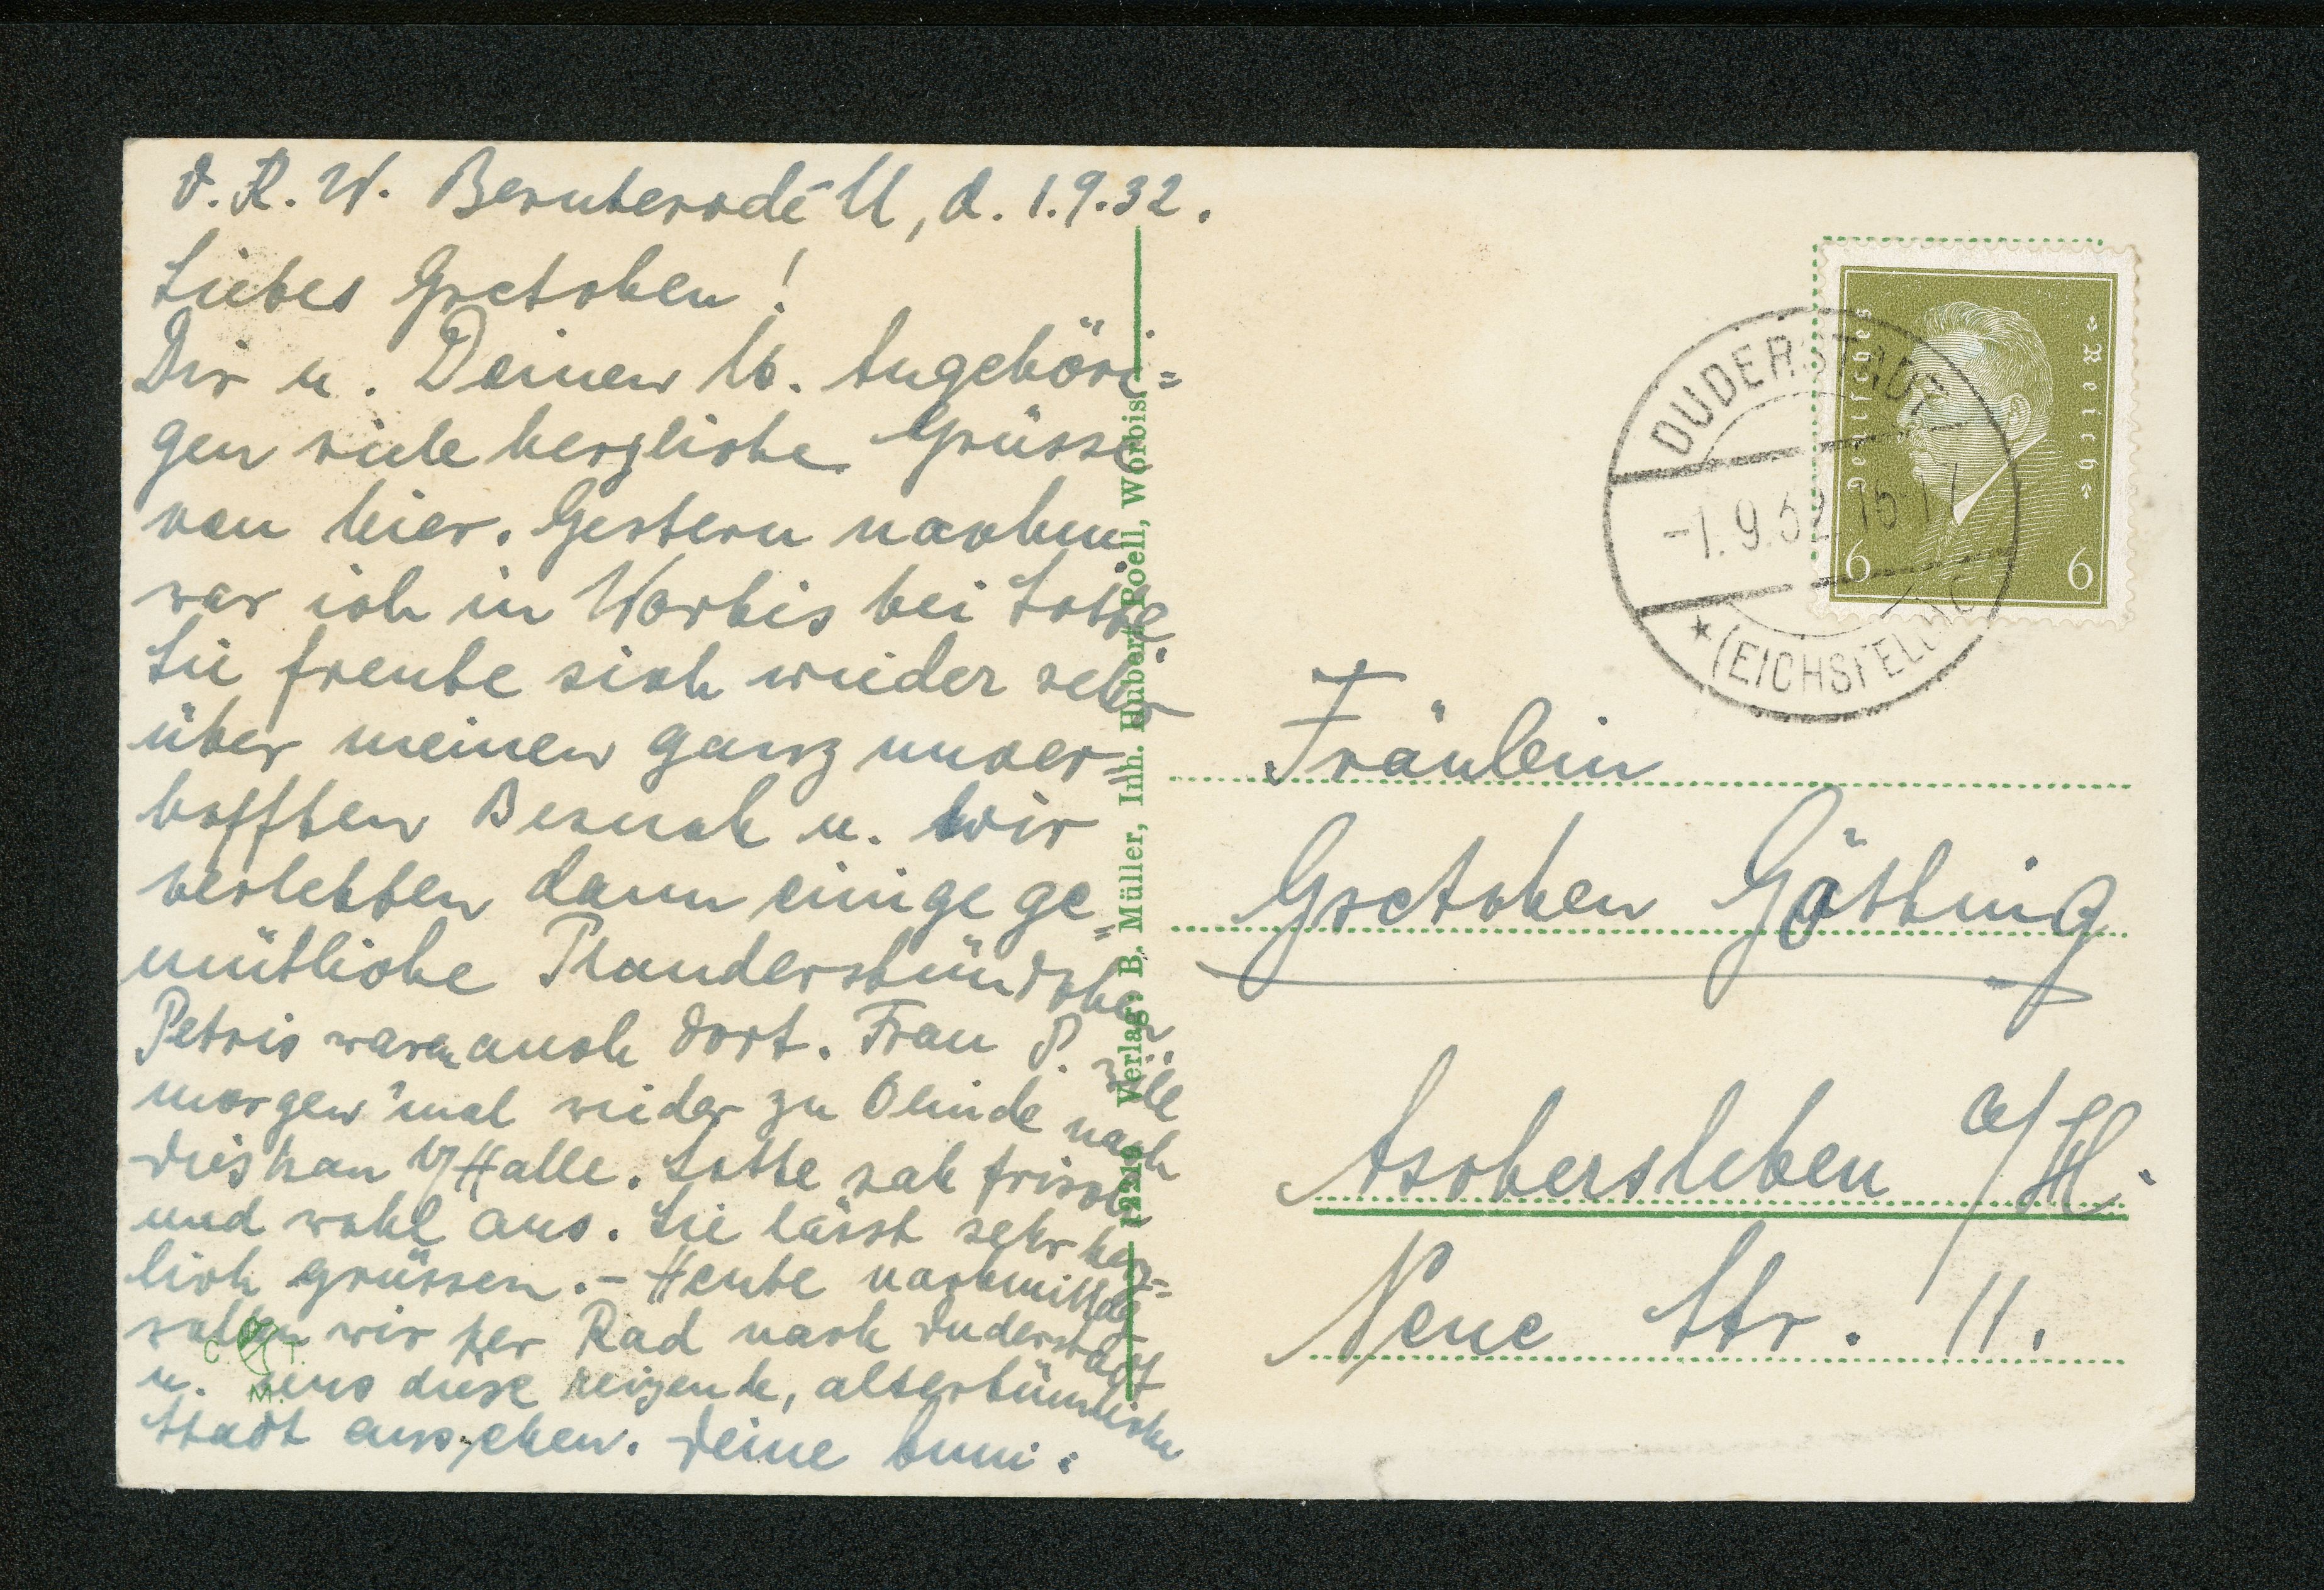 d. R. W. Bernterode-U, d. 1.9.32.
Liebes Gretchen!
Dir u. Deinen lb. Angehöri=
gen viele herzliche Grüsse
von hier. Gestern nachm
war ich in Worbis bei Lotte
Sie freute sich wieder sehr
über meinen ganz unver=
hofften Besuch u. wir
verlebten dann einige ge=
mütliche Plauderstündchen
Petris waren auch dort. Frau P.
morgen 'mal wieder zu nach
Dieskau b/Halle. Lotte sah frisch
und wohl aus. Sie lässt sehr herz=
lich grüssen. - Heute nachmittag
wollen wir per Rad nach Duderstadt
u. uns diese reizende, altertümliche
Stadt ansehen. Deine
C T.
M.
12210 Verlag: B. Müller, Inh. Hubert Poell, Worbis
Deutsches Reich
6 6
DUDERSTADT
-1.9.32 16-17
* (EICHSFELD)
Fräulein
Gretchen Götting
Aschersleben a/H.
Neue Str. 11.